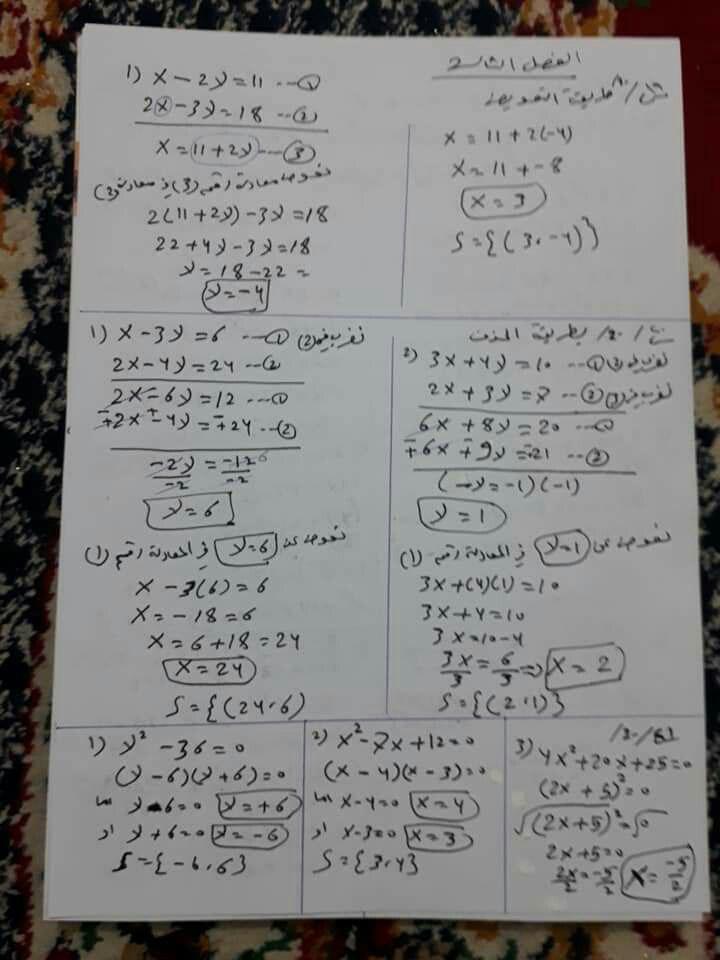 الفصل الثالث
مثال / طريقة التعويض
1) x - 2y = 11 --- ①
2x - 3y = 18 --- ②
x = 11 + 2y --- ③
نعوض معادلة رقم (3) في معادلة (2)
2(11 + 2y) - 3y = 18
22 + 4y - 3y = 18
y = 18 - 22 =
y = -4
x = 11 + 2(-4)
x = 11 + -8
x = 3
S = {(3, -4)}
1) x - 3y = 6 --- ① نضرب في (2)
2x - 4y = 24 --- ②
2x - 6y = 12 --- ①
∓2x ± 4y = ∓24 --- ②
-2y/-2 = -12/-2 6
y = 6
نعوض عن y = 6 في المعادلة رقم (1)
x - 3(6) = 6
x = - 18 = 6
x = 6 + 18 = 24
x = 24
S = {(24, 6)
بطريقة الحذف
2) 3x + 4y = 10 --- ①
2x + 3y = 7 --- ②
6x + 8y = 20 --- ①
∓6x ∓ 9y = ∓21 --- ②
(-y = -1)(-1)
y = 1
نعوض عن y = 1 في المعادلة رقم (1)
3x + (4)(1) = 10
3x + 4 = 10
3x = 10 - 4
3x/3 = 6/3 ⇒ x = 2
S = {(2, 1)}
1) y² - 36 = 0
(y - 6)(y + 6) = 0
اما y - 6 = 0 y = +6
او y + 6 = 0 y = -6
S = {-6, 6}
2) x² - 7x + 12 = 0
(x - 4)(x - 3) = 0
اما x - 4 = 0 x = 4
او x - 3 = 0 x = 3
S = {3, 4}
3) 4x² + 20x + 25 = 0
(2x + 5)² = 0
√(2x + 5)² = √0
2x + 5 = 0
2x/2 = -5/2 x = -5/2